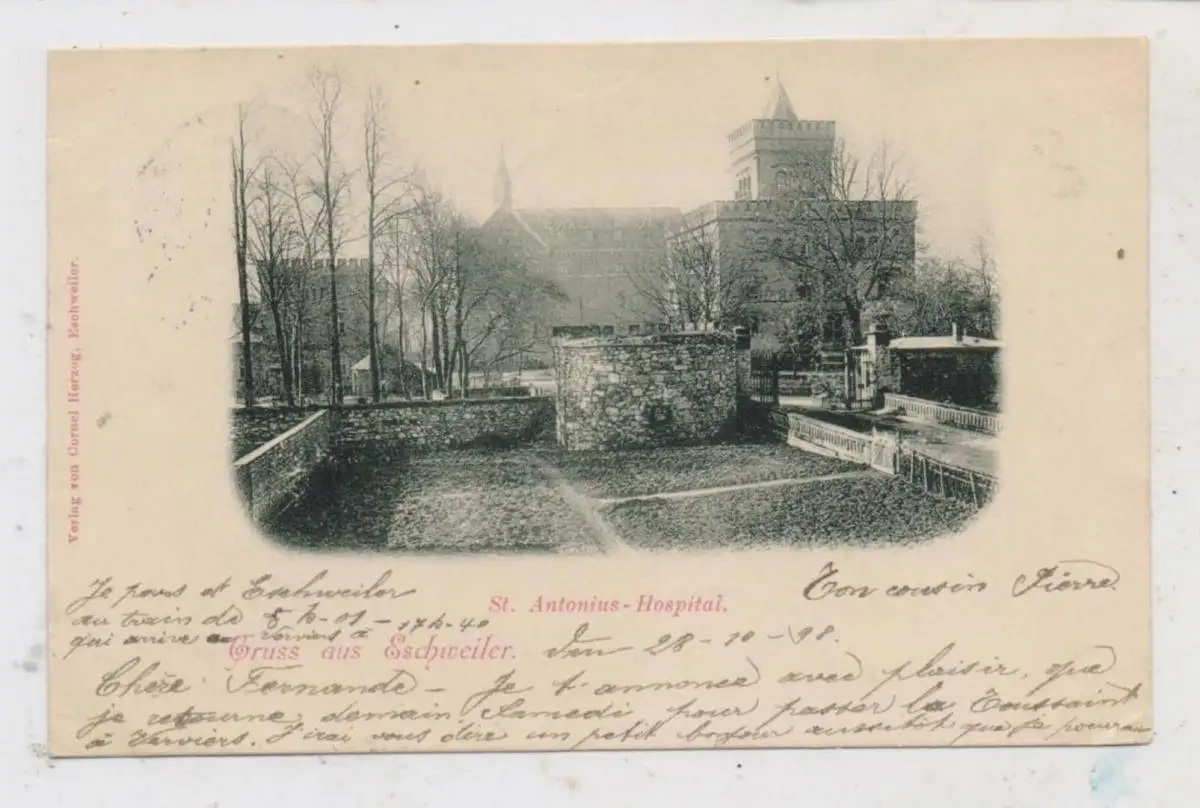 Verlag von Cornel Herzog, Eschweiler.
Je pars d' Eschweiler
au train de 5 h-01 - 17h-40
qui arrive Verviers à
St. Antonius-Hospital.
Ton cousin Pierre.
Gruss aus Eschweiler.
den 28-10-98.
Chère Fernande - Je t'annonce avec plaisir, que
je retourne demain Samedi pour passer la Toussaint
à Verviers. J'irai vous dire un petit bonjour aussitôt que je pourrai